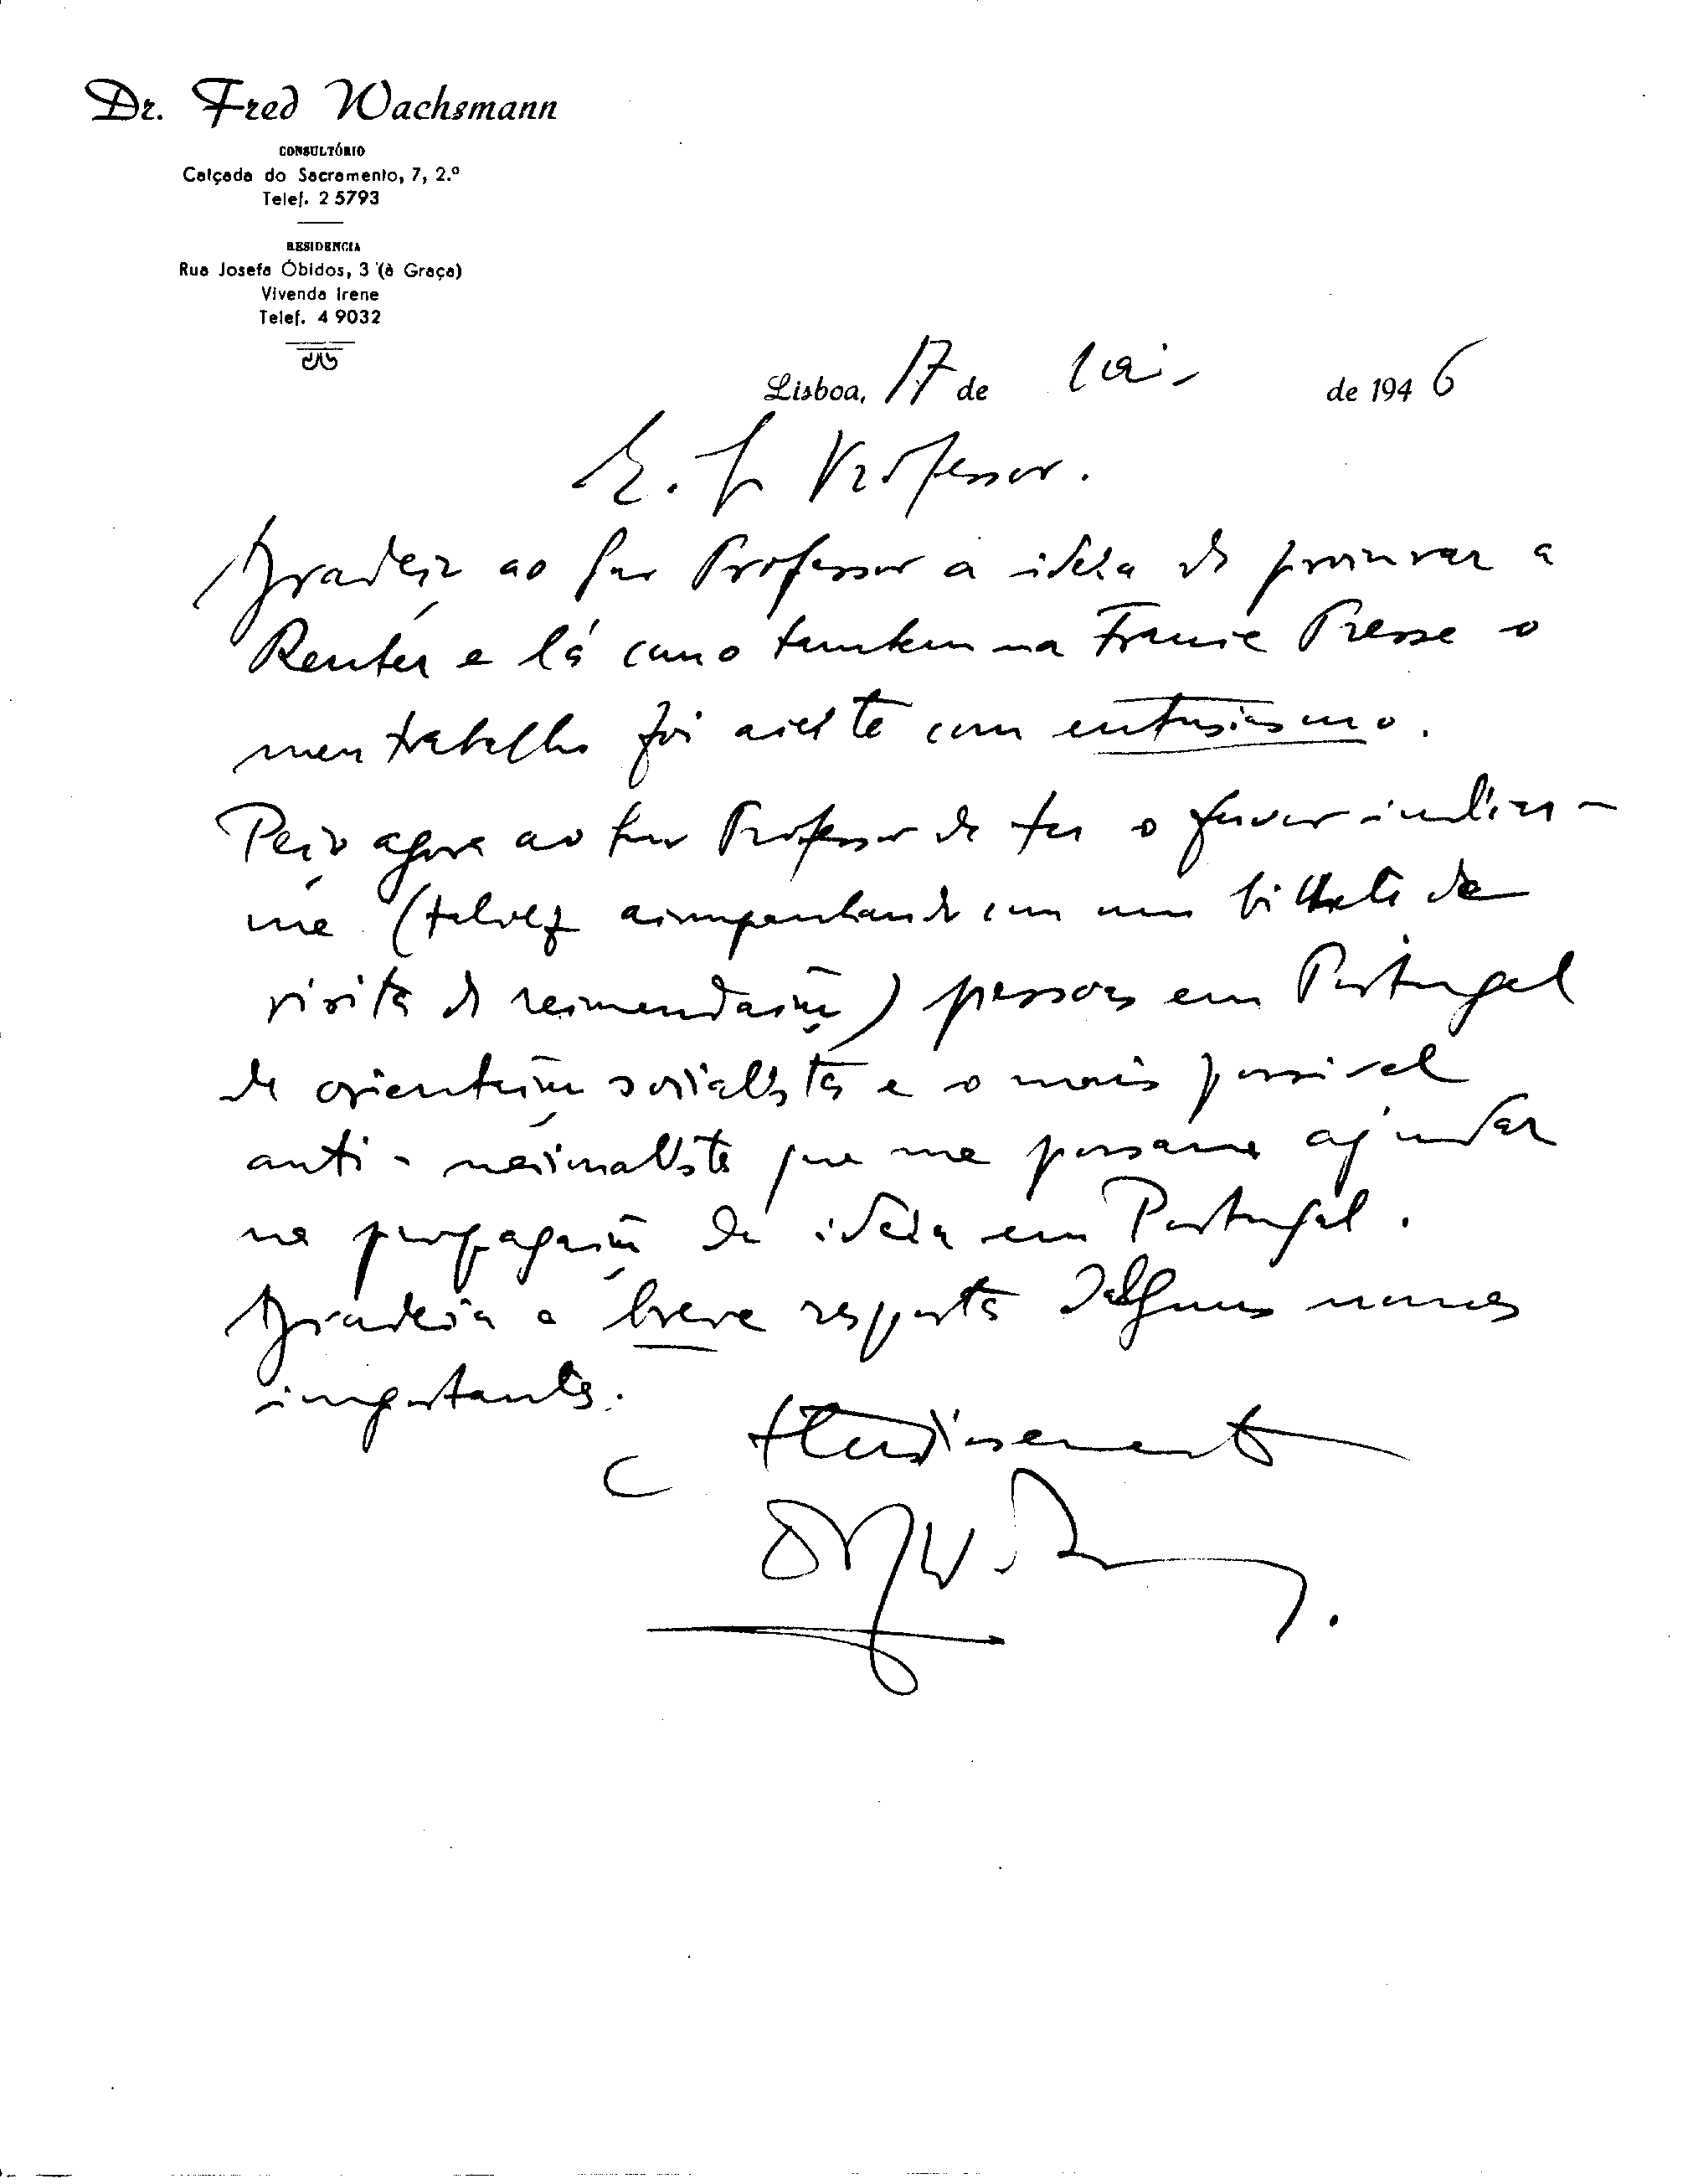 Dr. Fred Wachsmann
CONSULTÓRIO
Calçada do Sacramento, 7, 2.º
Telef. 2 5793
RESIDENCIA
Rua Josefa Óbidos, 3 (à Graça)
Vivenda Irene
Telef. 4 9032
Lisboa, 17 de de 1946
Professor.
Agradeço ao Snr Professor a ideia de procurar a
Reuter e lá como tambem na France Presse o
meu trabalho foi aceite com entusiasmo.
Peço agora ao Snr Professor de ter o favor indicar-
me (talvez acompanhando com um bilhete de
visita de recomendação) pessoas em Portugal
de orientação socialista e o mais possivel
anti-nacionalista que me possam ajudar
na propagação da ideia em Portugal.
Agradecia a breve resposta dalguns nomes
importantes.